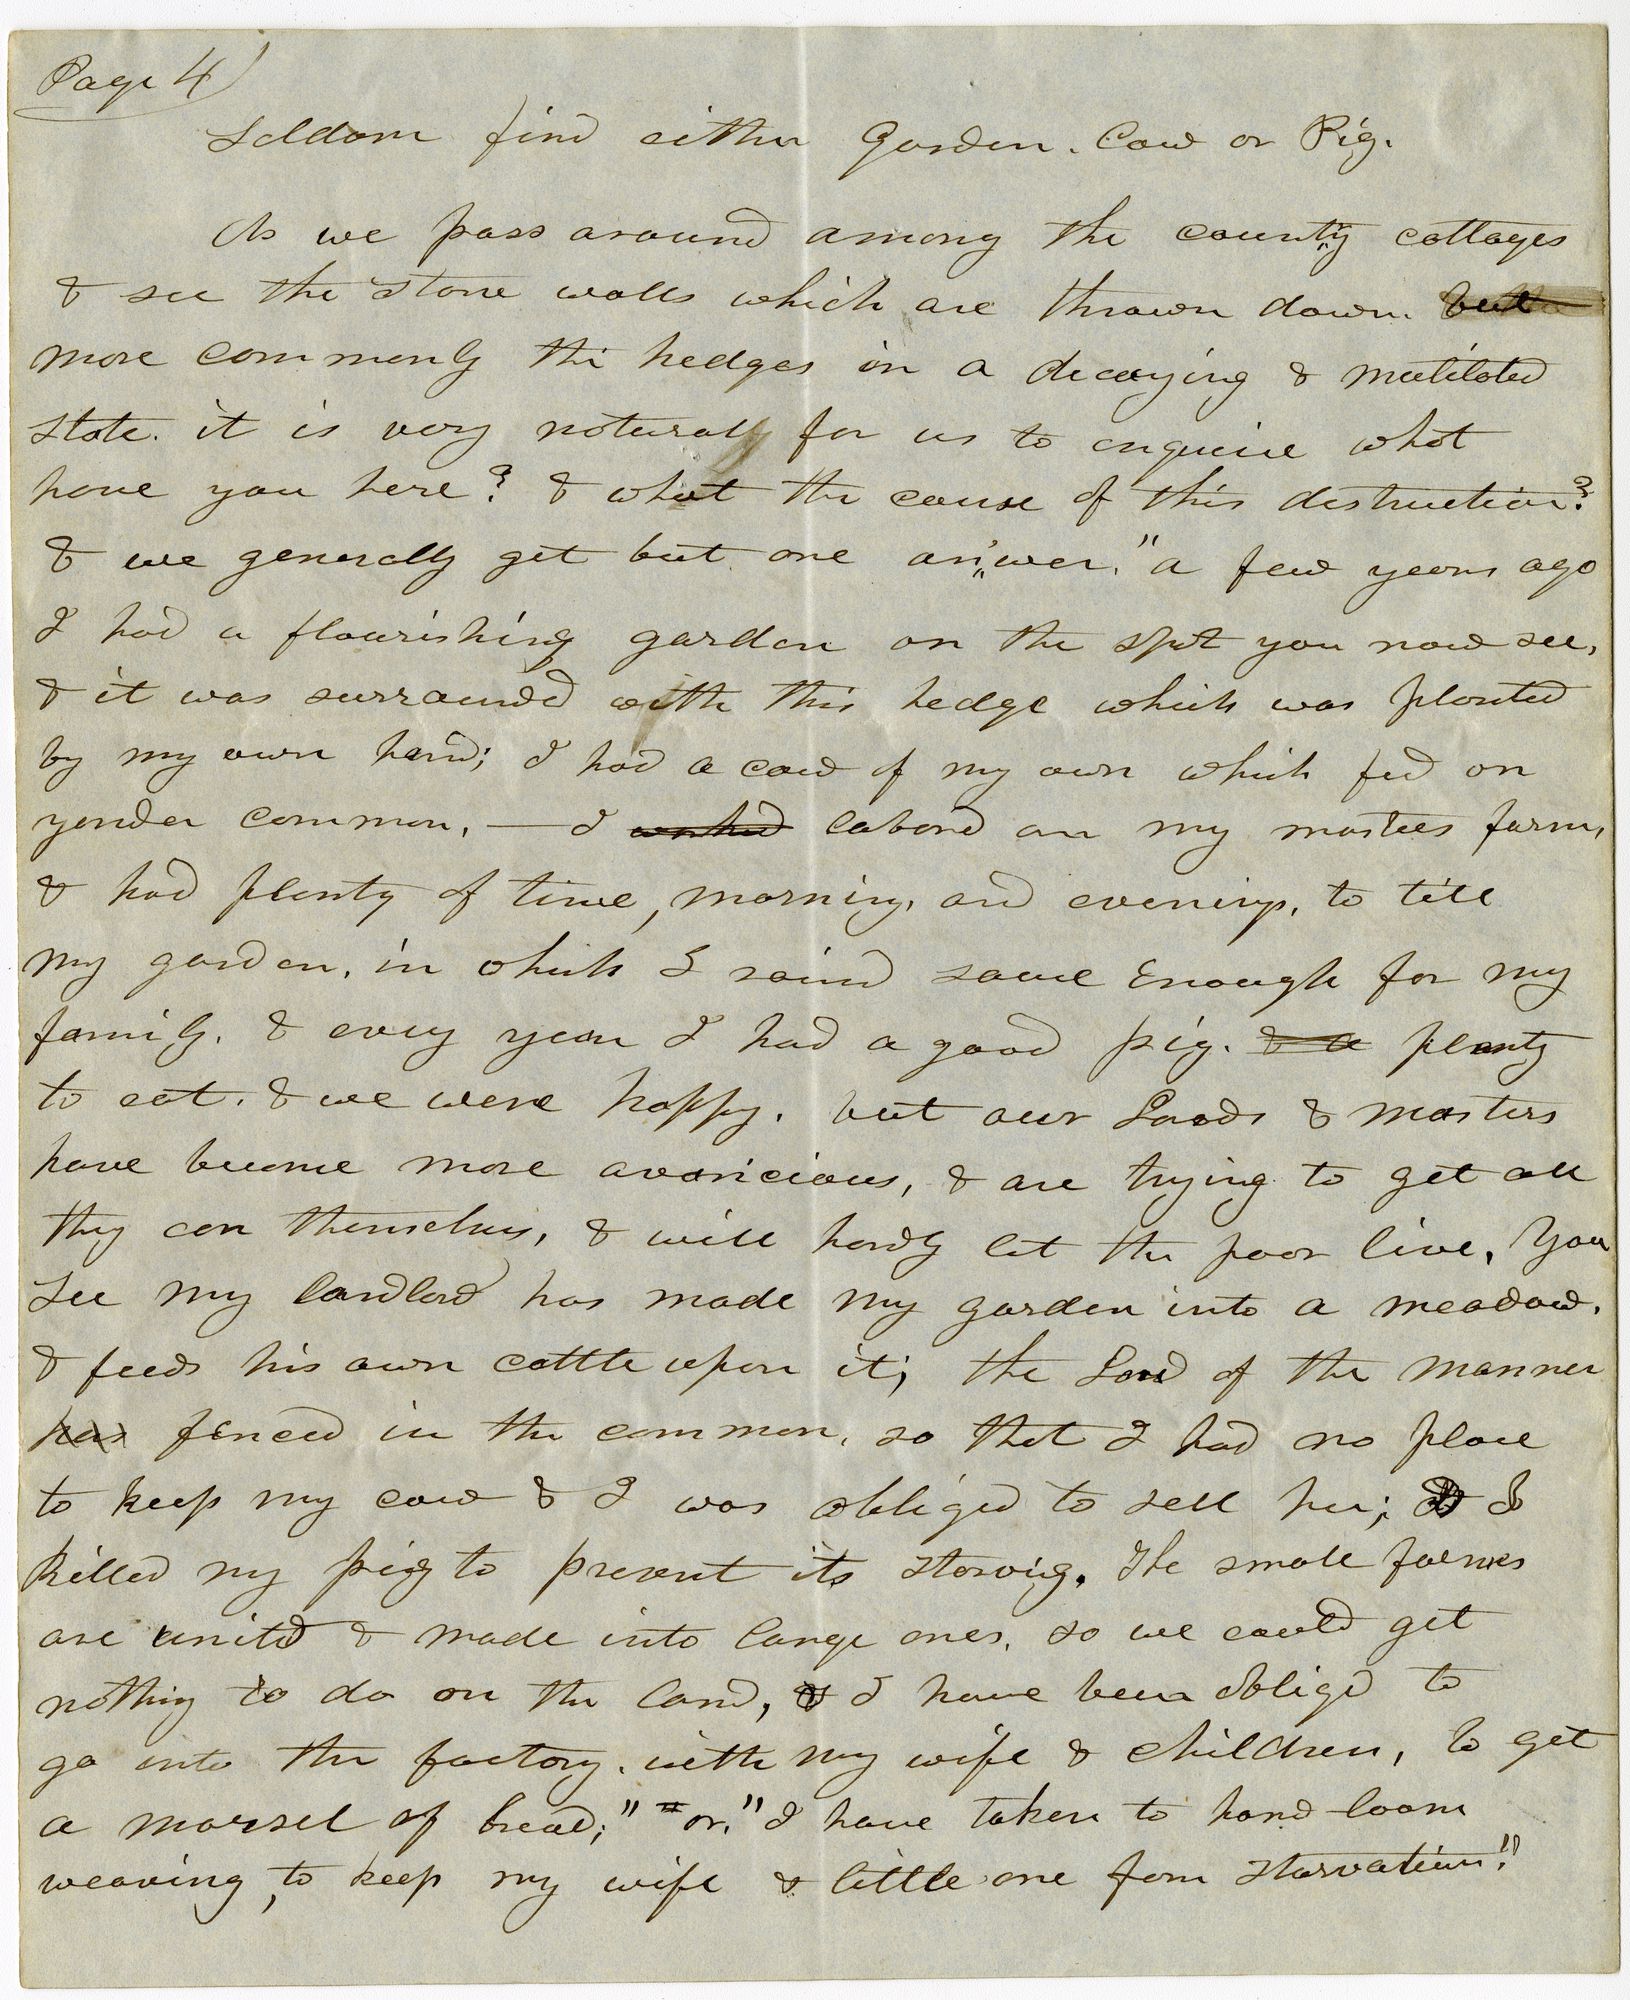 Page 4
Seldom find either Garden. Cow or Pig.
As we pass around among the county cottages
& see the stone walls which are thrown down. but
more commonly the hedges in a decaying & mutilated
state. it is very naturaly for us to enquire what
have you here? & what the cause of this destruction?
& we generally get but one answer. "a few years ago
I had a flourishing garden on the spot you now see,
& it was surrounded with this hedge which was planted
by my own hand; I had a cow of my own which fed on
yonder common, — I worked labord on my masters farm,
& had plenty of time, morning, and evenings, to till
my garden, in which I raisd sauce Enough for my
family. & every year I had a good pig. & a plenty
to eat. & we were happy. but our Lords & masters
have become more avaricious, & are trying to get all
they can themselves, & will hardly let the poor live, You
see my landlord has made my garden into a meadow.
& feeds his own cattle upon it; the Lord of the manner
has fenced in the common, so that I had no place
to keep my cow & I was obliged to sell her; & I
killed my pig to prevent its starvig. The small farmes
are unitd & made into large ones, so we could get
nothing to do on the land, & I have been obligd to
go into the factory. with my wife & children, to get
a morsel of bread;" "or." I have taken to hand-loom
weaving, to keep my wife & little one from starvation."